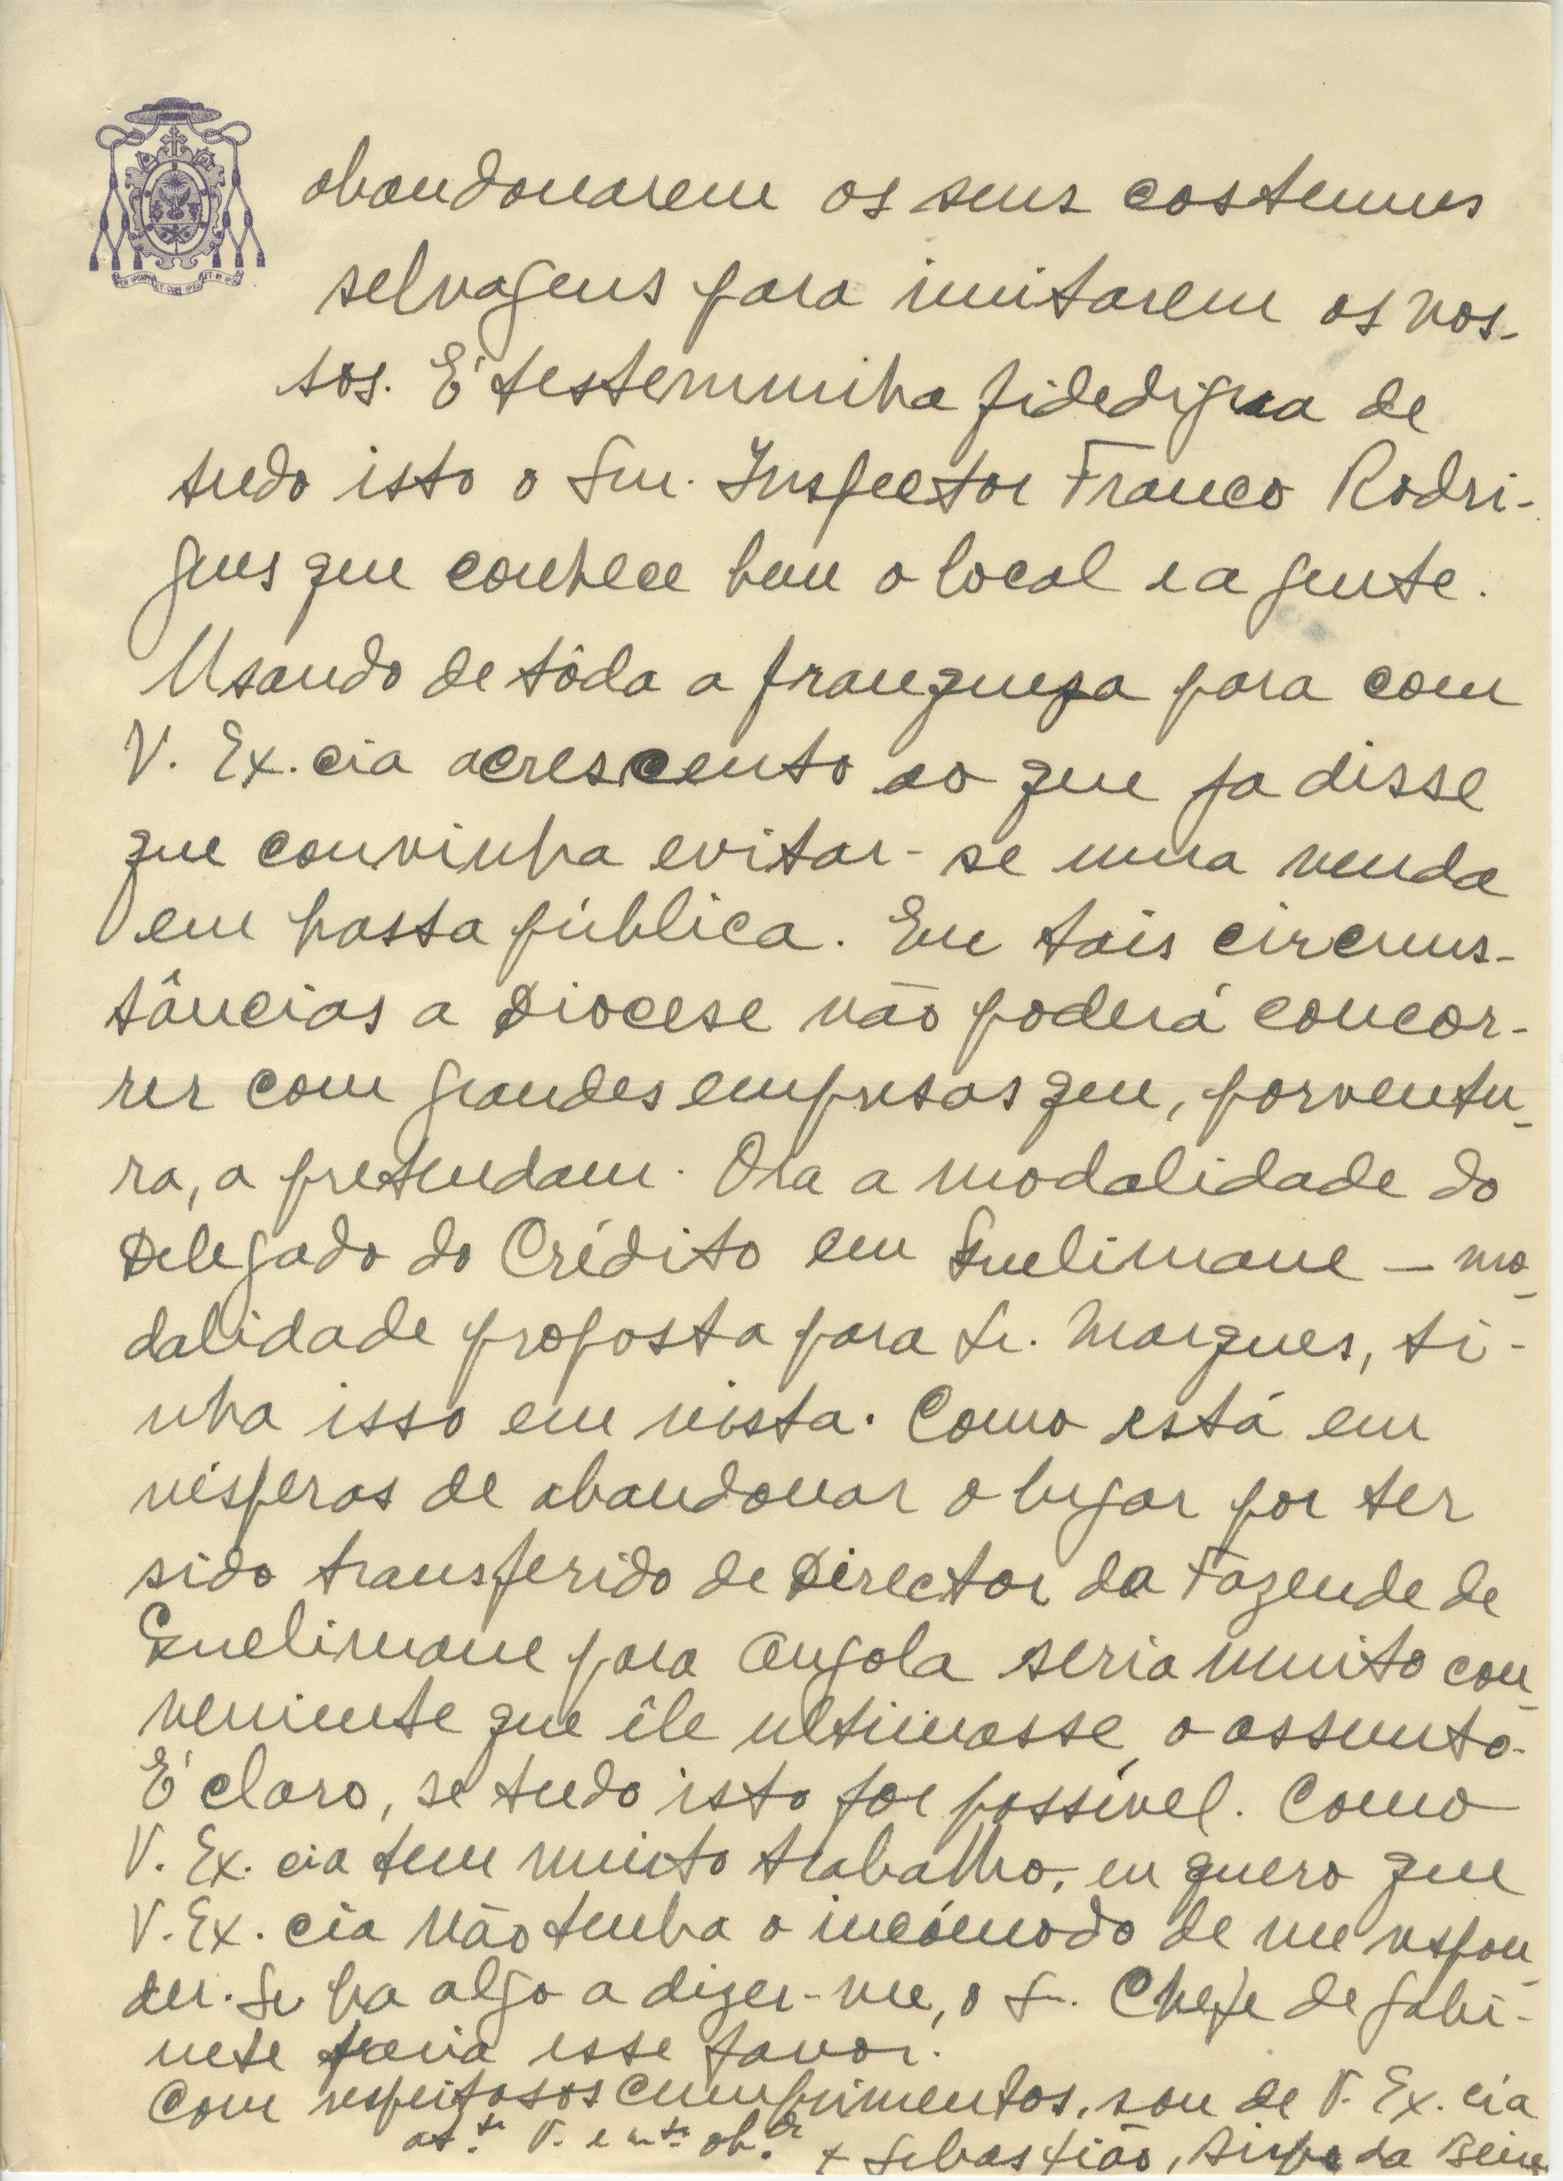 abandonarem os seus costumes
selvagens para imitarem os nos-
sos. É testemunha fidedigna de
tudo isto o Snr. Inspector Franco Rodri-
gues que conhece bem o local e a gente.
Usando de tôda a franqueza para com
V. Ex.cia acrescento ao que ja disse
que convinha evitar-se uma venda
em hasta pública. Em tais circuns-
tâncias a Diocese não poderá concor-
rer com grandes empresas que, porventu-
ra, a pretendam. Ora a modalidade do
Delegado do Crédito em Quelimane - mo-
dalidade proposta para Sr. Marques, ti-
nha isso em vista. Como está em
vésperas de abandonar o lugar por ter
sido transferido de Director da Fazende de
Quelimane para Angola seria muito con-
veniente que êle ultimasse o assunto.
É claro, se tudo isto for possível. Como
V. Ex. cia tem muito trabalho, eu quero que
V. Ex. cia não tenha o incómodo de me respon-
der. Se ha algo a dizer-me, o Sr. Chefe de gabi-
nete faria esse favor.
Com respeitosos cumprimentos, sou de V. Ex. cia
at.te V. e m.to ob.do + Sebastião, Bispo da Beira